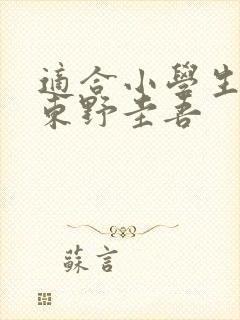 適合小學生
東野圭吾
蘇言